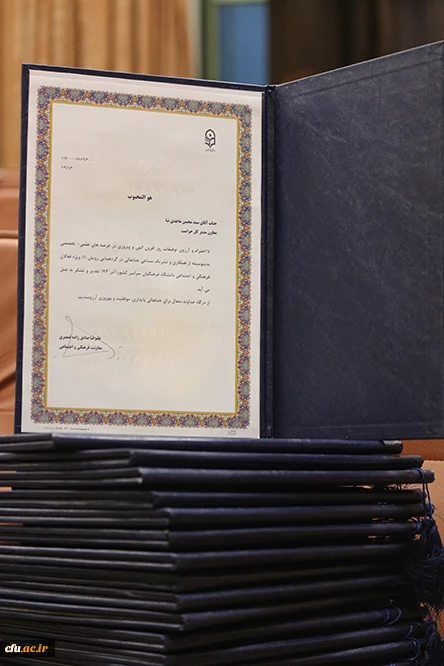 هوالمحبوب
جناب آقای سید محسن ماجدی نیا
معاون مدیر کل حراست
با احترام و آرزوی توفیقات روز افزون الهی و پیروزی در عرصه های علمی، تخصصی
بدینوسیله از همکاری و تشریک مساعی جنابعالی در گردهمایی رویش (۱) ویژه فعالان
فرهنگی و اجتماعی دانشگاه فرهنگیان سراسر کشور(آذر ۹۳) تقدیر و تشکر به عمل
می آید.
از درگاه خداوند متعال برای جنابعالی پایداری، موفقیت و بهروزی آرزومندیم.
علیرضا صادق زاده قمصری
معاونت فرهنگی و اجتماعی
cfu.ac.ir